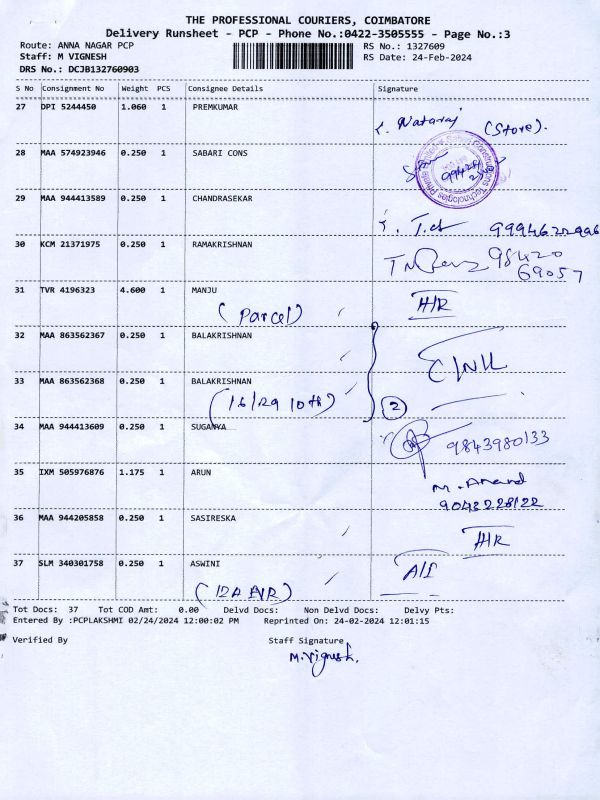 THE PROFESSIONAL COURIERS, COIMBATORE
Delivery Runsheet - PCP - Phone No.:0422-3505555 - Page No.:3
Route: ANNA NAGAR PCP
Staff: M VIGNESH
DRS No.: DCJB132760903
RS No.: 1327609
RS Date: 24-Feb-2024
S No Consignment No Weight PCS Consignee Details Signature
27 DPI 5244450 1.060 1 PREMKUMAR
Nataraj (Store).
28 MAA 574923946 0.250 1 SABARI CONS
29 MAA 944413589 0.250 1 CHANDRASEKAR
9994622996
30 KCM 21371975 0.250 1 RAMAKRISHNAN
98420
69057
31 TVR 4196323 4.600 1 MANJU
(Parcel)
H/R
32 MAA 863562367 0.250 1 BALAKRISHNAN
33 MAA 863562368 0.250 1 BALAKRISHNAN
(16/29 10th)
2
34 MAA 944413609 0.250 1 SUGANYA
9843980133
35 IXM 505976876 1.175 1 ARUN
M. Anand
9043228122
36 MAA 944205858 0.250 1 SASIRESKA
H/R
37 SLM 340301758 0.250 1 ASWINI
A/I
Tot Docs: 37 Tot COD Amt: 0.00 Delvd Docs: Non Delvd Docs: Delvy Pts:
Entered By :PCPLAKSHMI 02/24/2024 12:00:02 PM Reprinted On: 24-02-2024 12:01:15
Verified By Staff Signature
M.Vignesh.